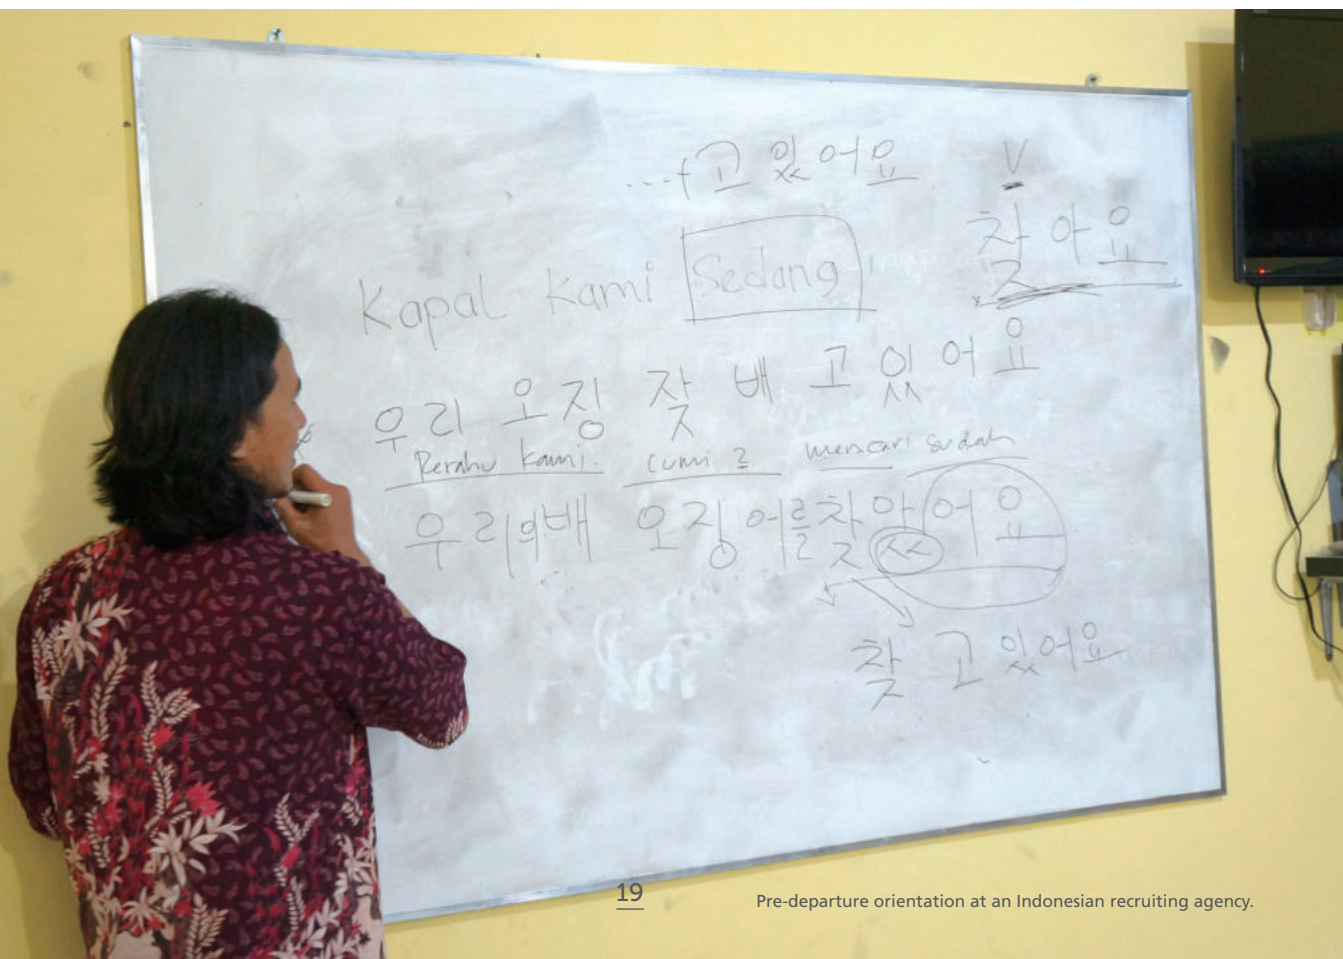 ....+ 고 있어요 V
찾아요
Kapal Kami Sedang
우리 오징 찾 배 고 있어요
Perahu kami. cumi 2 mencari sudah
우리의배 오징어를찾았어요
찾 고 있어요
19
Pre-departure orientation at an Indonesian recruiting agency.